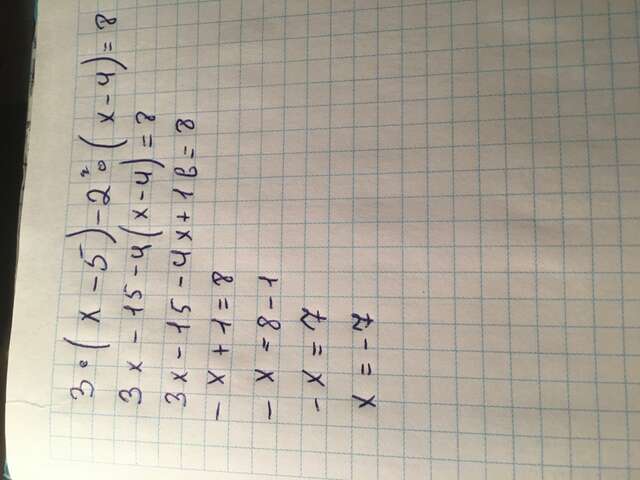 3·(x-5)-2²·(x-4)=8
3x-15-4(x-4)=8
3x-15-4x+16=8
-x+1=8
-x=8-1
-x=7
x=-7